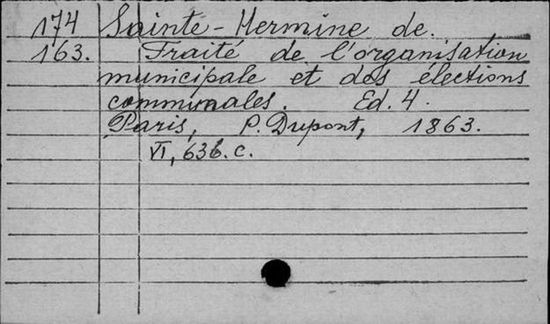 174 Sainte-Hermine de.
163. Traité de l'organisation
municipale et des élections
communales. Ed. 4.
Paris, P. Dupont, 1863.
VI, 636. c.